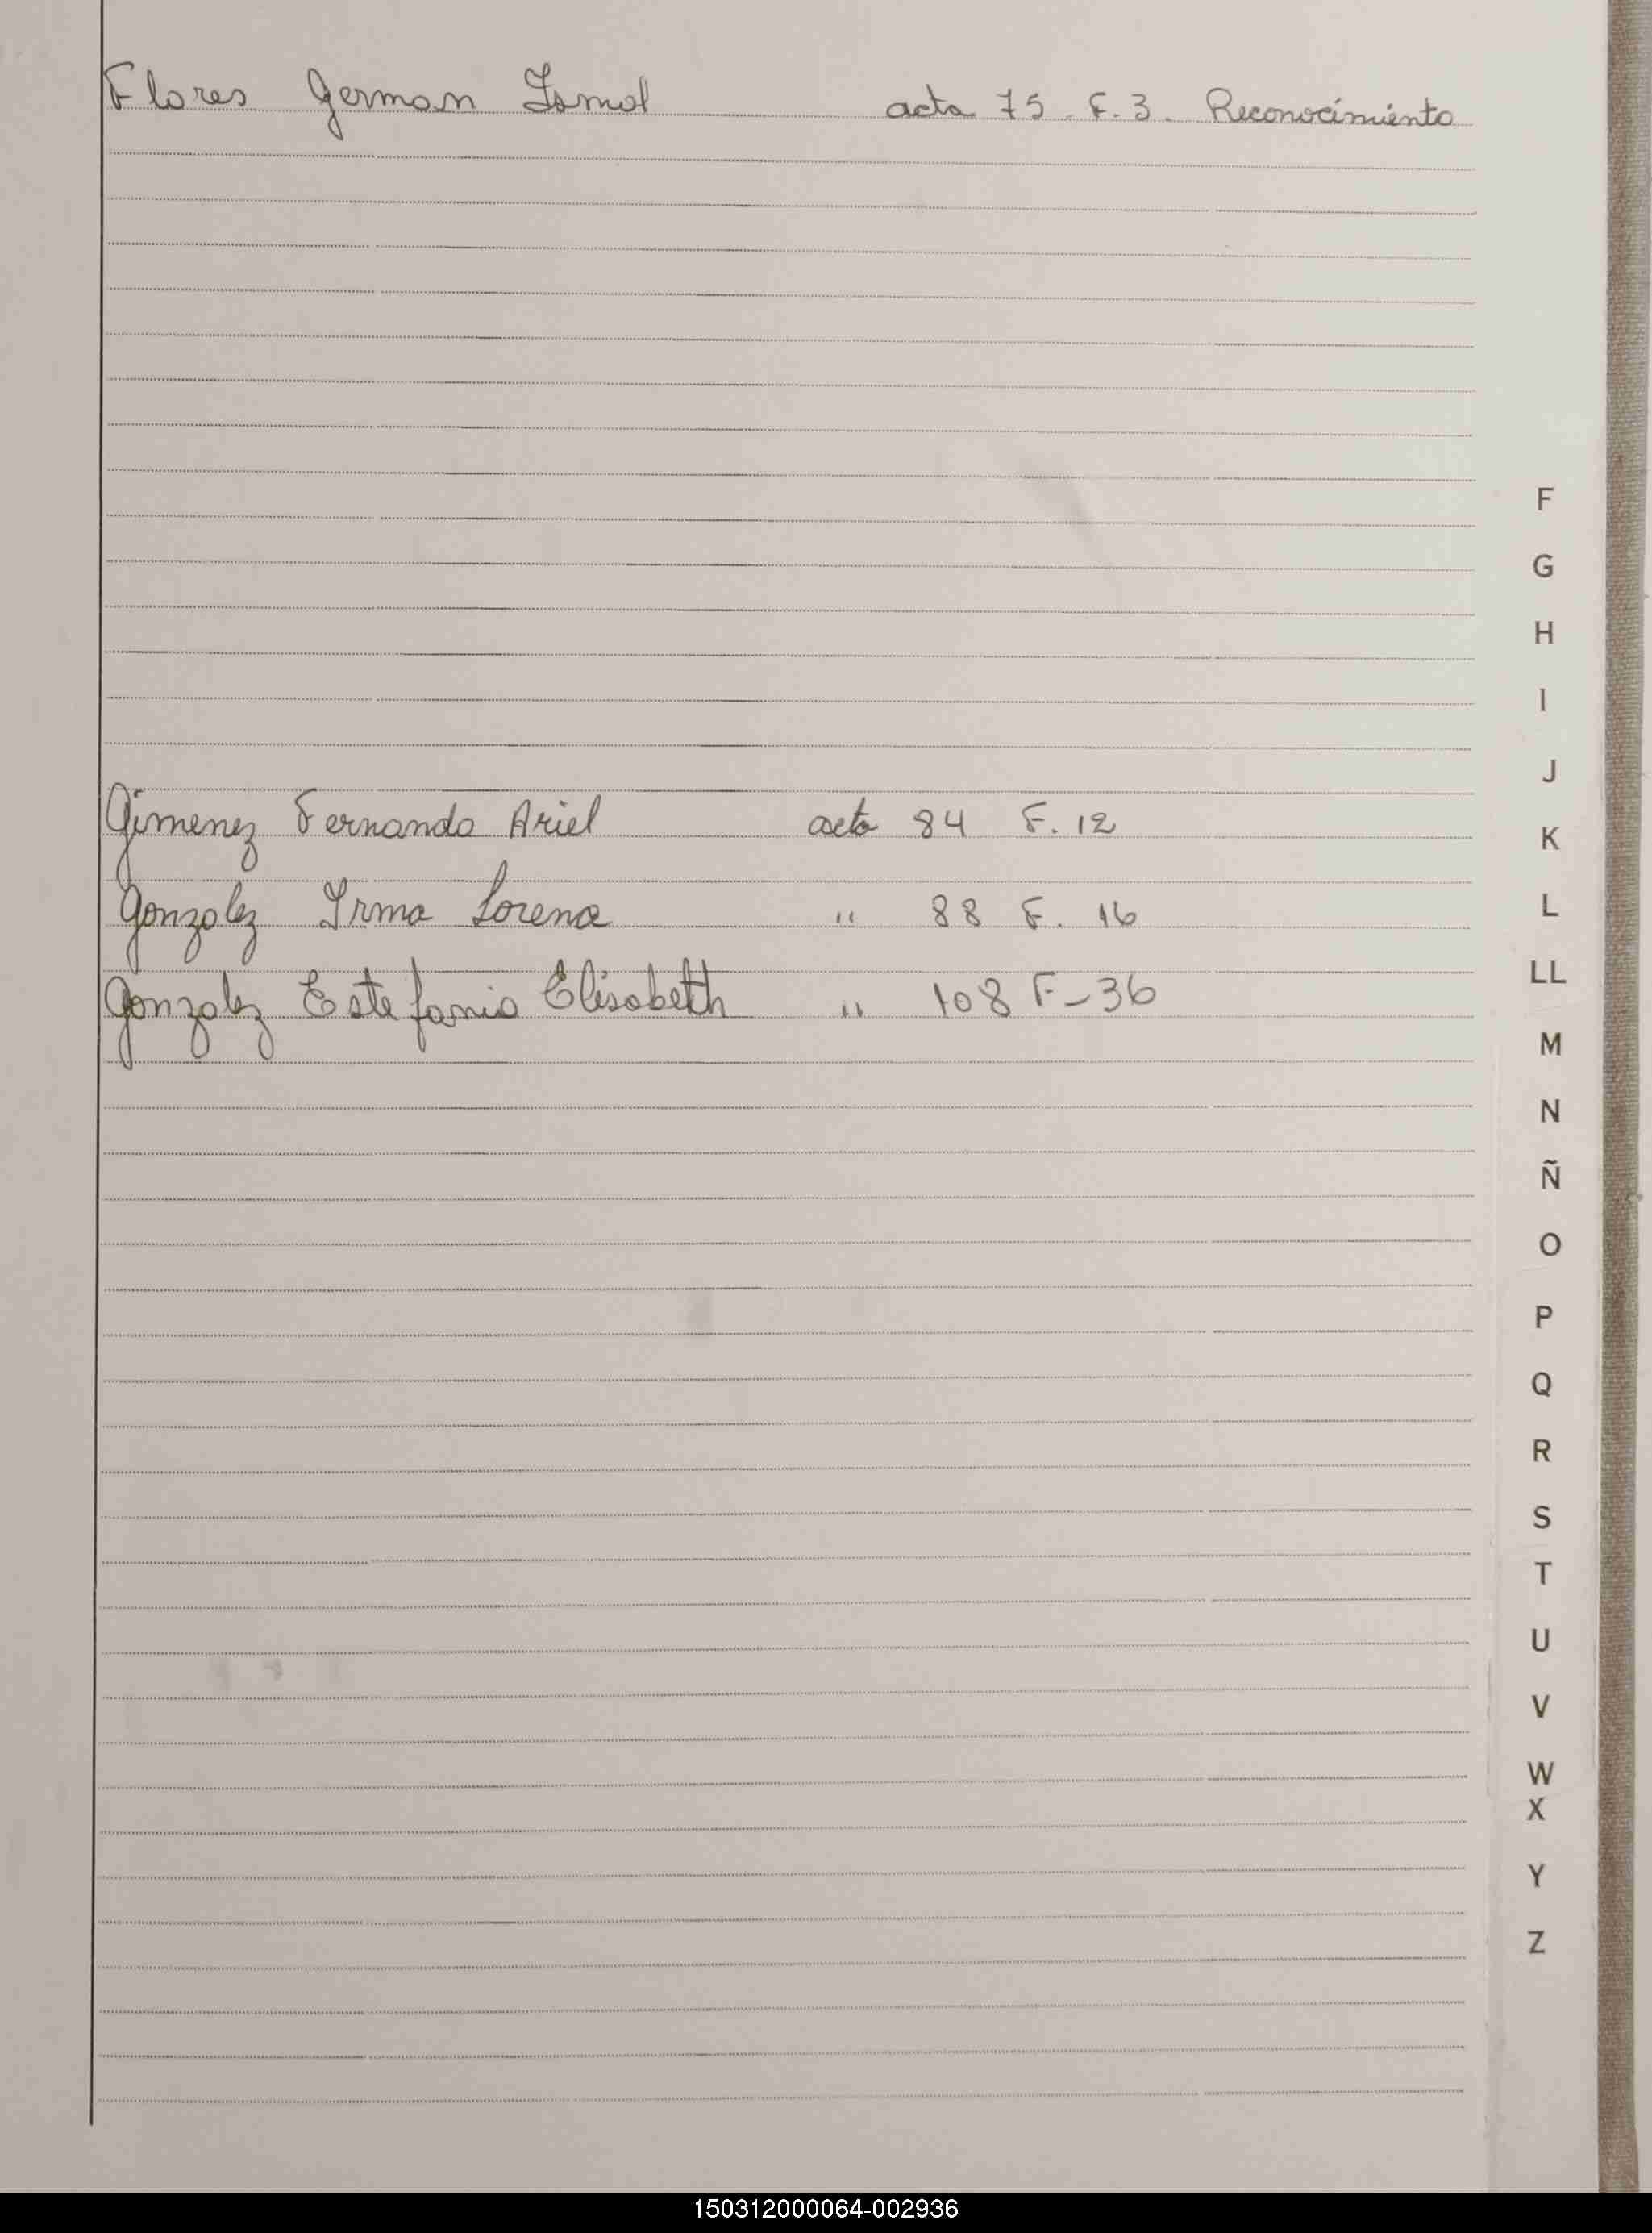 Flores German Ismal acta 75. F. 3. Reconocimiento
F
G
H
I
J
Gimenez Fernando Ariel acta 84 F. 12
K
Gonzalez Irma Lorena " 88 F. 16
L
LL
Gonzalez Estefania Elisabeth " 108 F-36
M
N
Ñ
O
P
Q
R
S
T
U
V
W
X
Y
Z
150312000064-002936